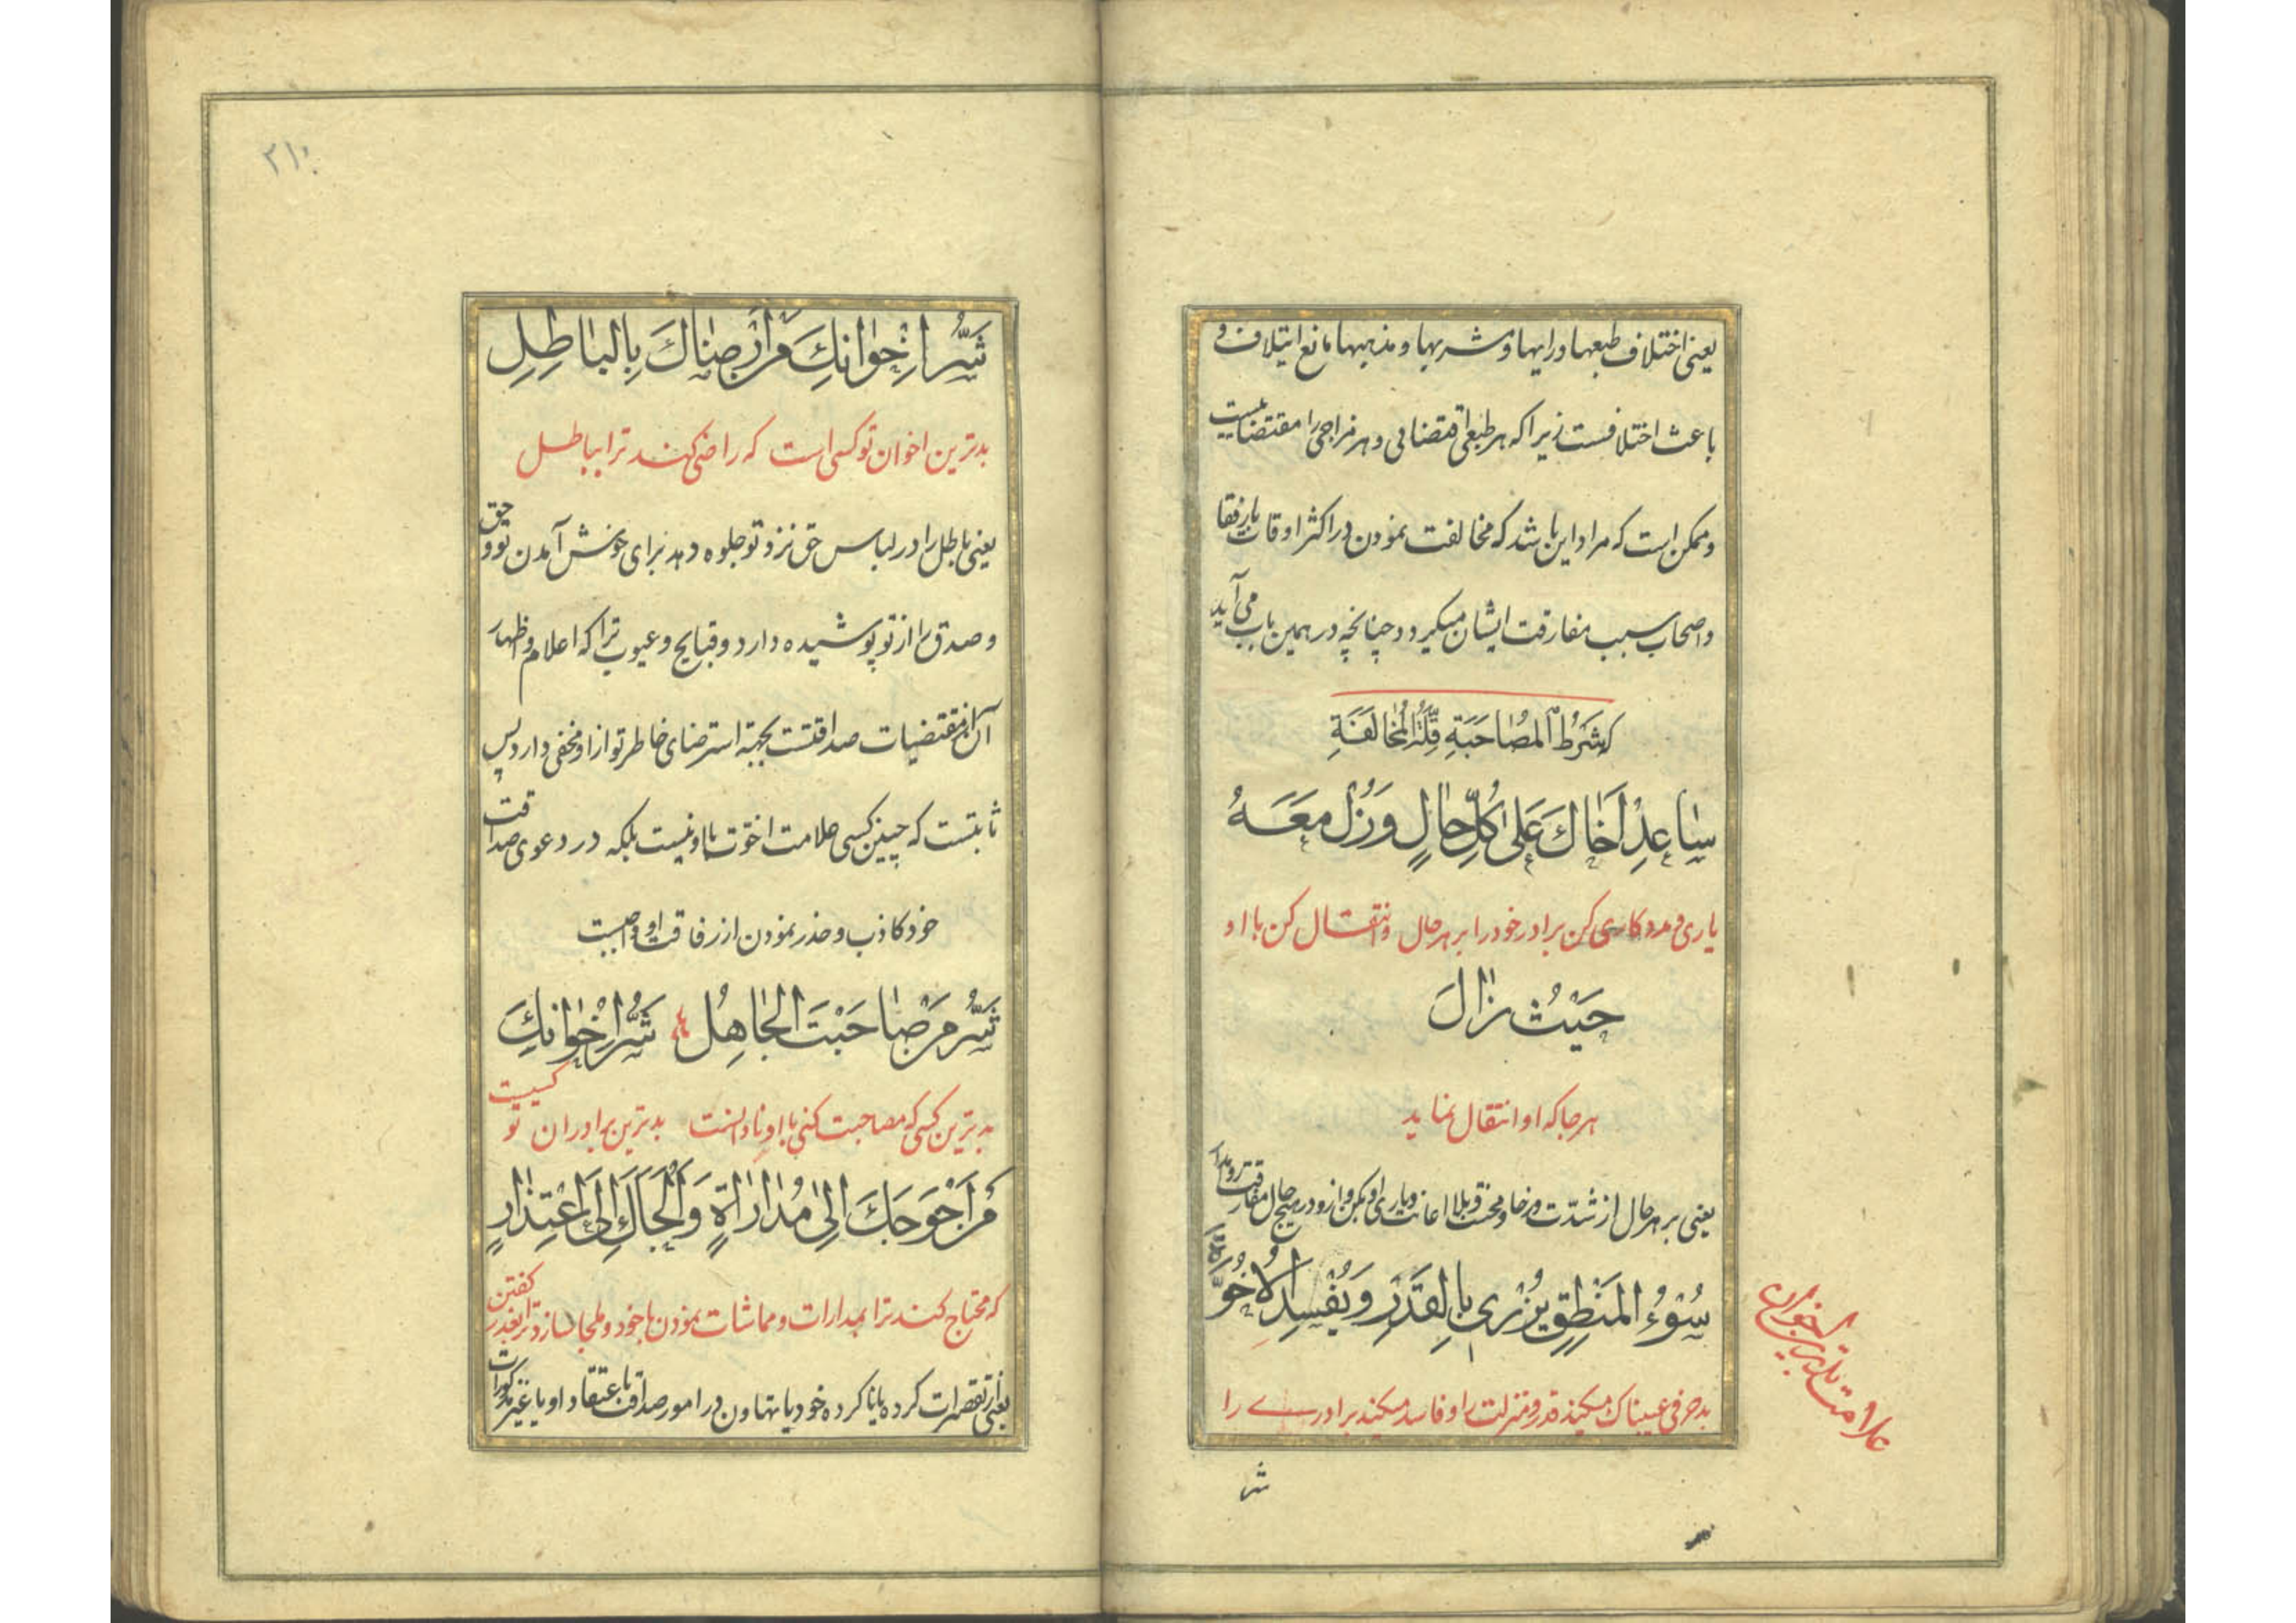 یعنی اختلاف طبعها و رایها و مشربها و مذهبها مانع ایتلاف و
باعث اختلافست زیرا که هر طبعی اقتضائی و هر مزاجی را مقتضائیست
و ممکن است که مراد این باشد که مخالفت نمودن در اکثر اوقات با رفقا
و اصحاب سبب مفارقت ایشان میگردد چنانچه در همین باب می آید
که شَرْطُ الْمُصٰاحَبَةِ قِلَّةُ الْمُخٰالَفَةِ
سٰاعِدْ اَخٰاكَ عَلىٰ كُلِّ حٰالٍ وَزُلْ مَعَهُ
یاری و مددکاری کن برادر خود را بر هر حال و انتقال کن با او
حَيْثُ زٰالَ
هر جا که او انتقال نماید
یعنی بر هر حال از شدّت و رخا و محنت و بلا اعانت و یاری او بکن و از او در هیچ حال مفارقت
سُوْءُ الْمَنْطِقِ يُزْرِي بِالْقَدْرِ وَيُفْسِدُ الْاُخُوَّةَ
بد حرفی عیبناک میکند قدر و منزلت را و فاسد میکند برادرے را
علامت بدترین اخوان
شر
۲۱۰
شَرُّ اِخْوٰانِكَ مَنْ اَرْضٰاكَ بِالْبٰاطِلِ
بدترین اخوان تو کسی است که راضی کند ترا بباطل
یعنی باطل را در لباس حق نزد تو جلوه دهد برای خوش آمدن تو و حق
و صدق را از تو پوشیده دارد و قبایح و عیوب ترا که اعلام و اظهار
آن از مقتضیات صداقتست بجهة استرضای خاطر تو از او مخفی دارد پس
ثابتست که چنین کسی علامت اخوّت با او نیست بلکه در دعوی صداقت
خود کاذب و حذر نمودن از رفاقت او واجبست
شَرُّ مَنْ صٰاحَبْتَ الْجٰاهِلُ شَرُّ اِخْوٰانِكَ
بدترین کسی که مصاحبت کنی با او نادانست بدترین برادران تو کسیست
مَنْ اَحْوَجَكَ اِلىٰ مُدٰارٰاةٍ وَاَلْجَاَكَ اِلىٰ اعْتِذٰارٍ
که محتاج کند ترا بمدارات و مماشات نمودن با خود و ملجا سازد ترا بعذر گفتن
یعنی از تقصیرات کرده یا ناکرده خود یا تهاون در امور صداقت باعتقاد او یا غیر مذکورات